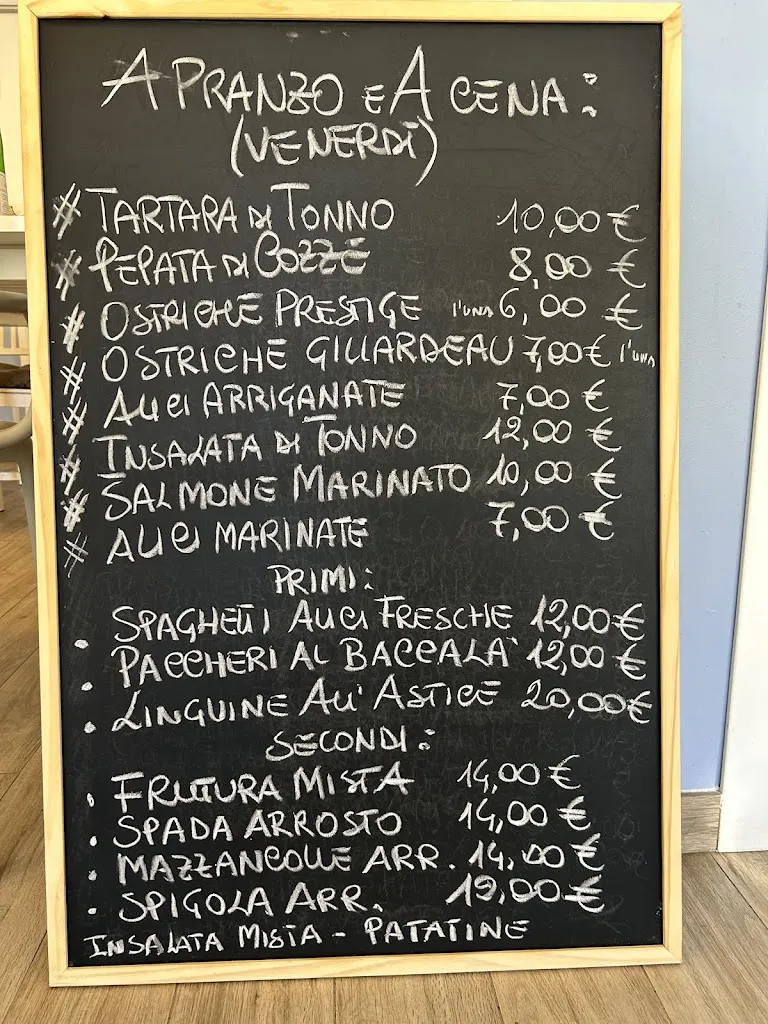 A PRANZO E A CENA:
(VENERDÌ)
# TARTARA DI TONNO 10,00 €
# PEPATA DI COZZE 8,00 €
# OSTRICHE PRESTIGE l'una 6,00 €
# OSTRICHE GILLARDEAU 7,00 € l'una
# ALICI ARRIGANATE 7,00 €
# INSALATA DI TONNO 12,00 €
# SALMONE MARINATO 10,00 €
# ALICI MARINATE 7,00 €
PRIMI:
• SPAGHETTI ALICI FRESCHE 12,00 €
• PACCHERI AL BACCALA' 12,00 €
• LINGUINE ALL'ASTICE 20,00 €
SECONDI:
• FRITTURA MISTA 14,00 €
• SPADA ARROSTO 14,00 €
• MAZZANCOLLE ARR. 14,00 €
• SPIGOLA ARR. 19,00 €
INSALATA MISTA - PATATINE